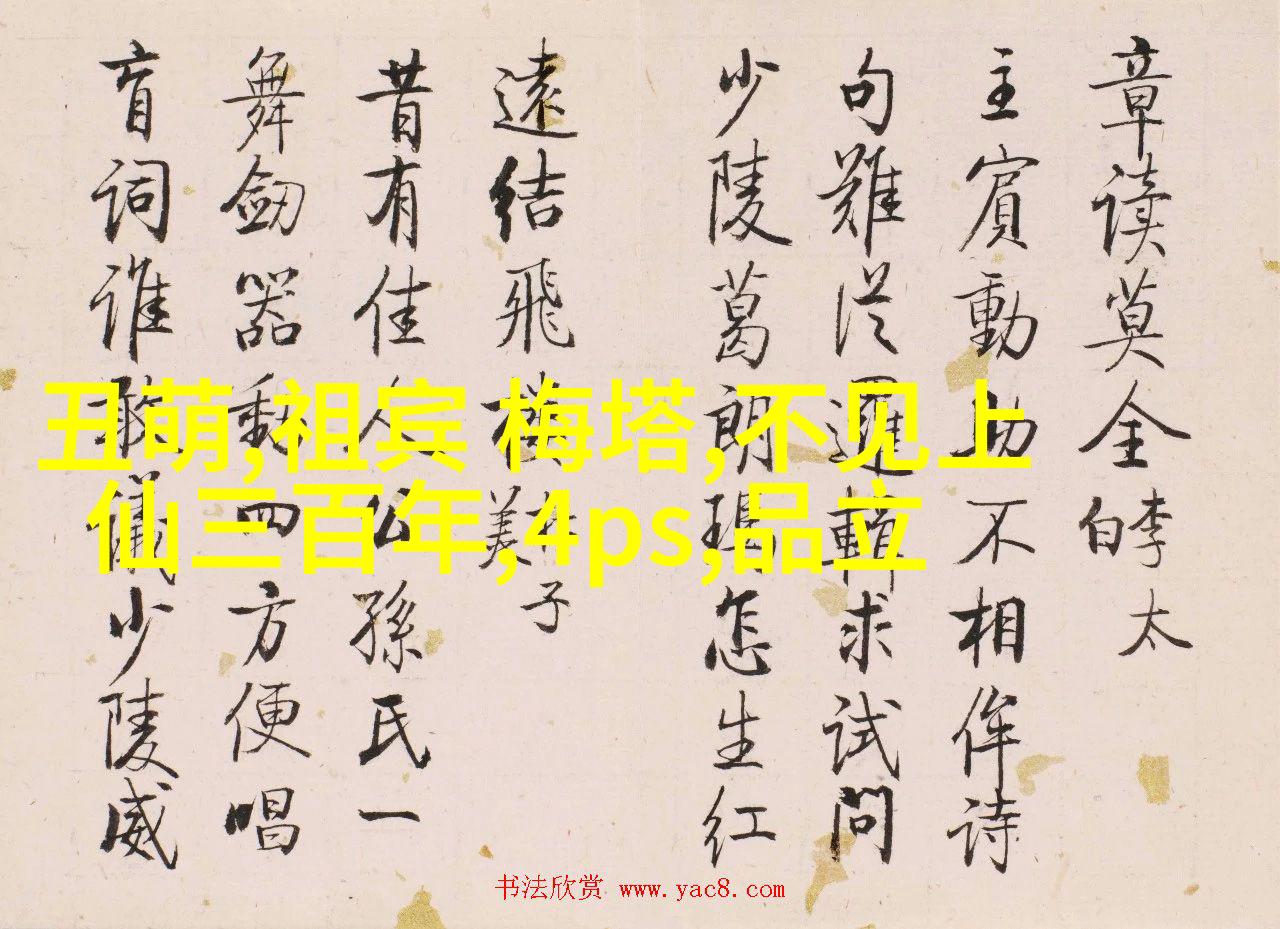 章读莫全李太白
主賓動不相侔诗
句難從邏輯求试問
少陵葛朗瑪怎生红
遠結飛樓美子
昔有佳人公孫氏一
舞劍器動四方便唱
盲词谁儀少陵威
丑萌,祖宾 梅塔,不见上
仙三百年,4ps,品立
书法欣赏 www.yac8.com